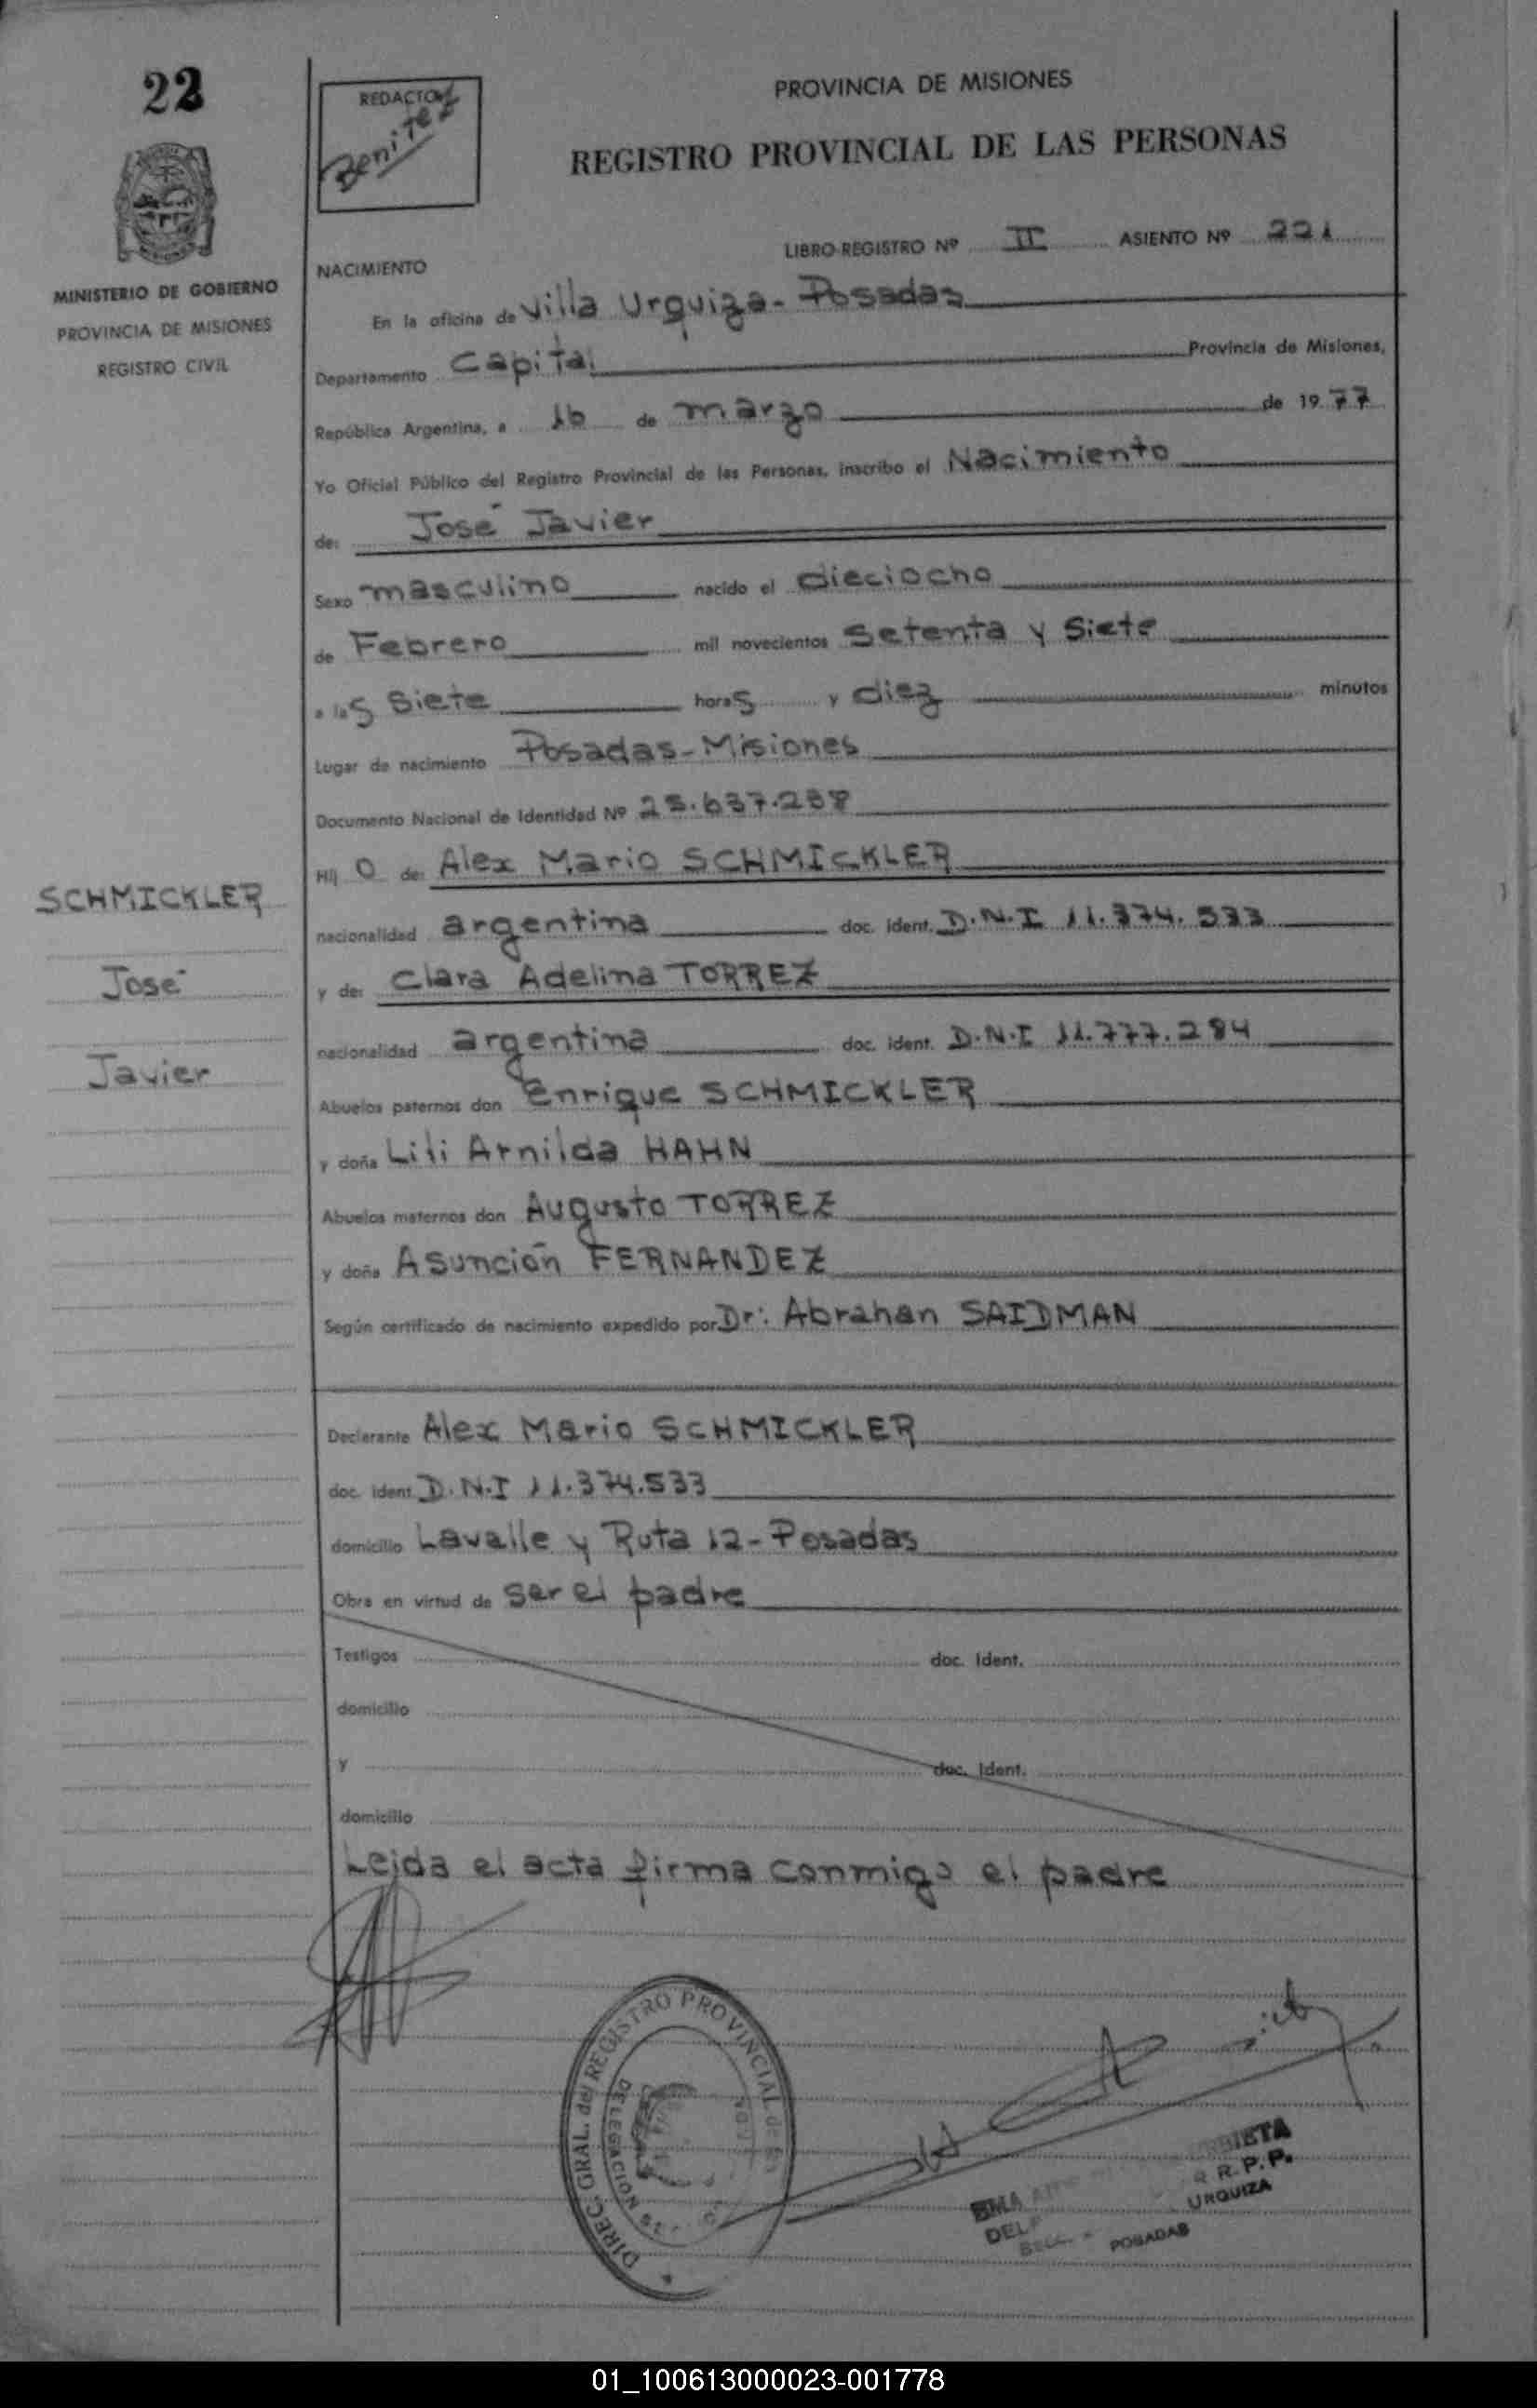 22
REDACTOR
Benitez
PROVINCIA DE MISIONES
REGISTRO PROVINCIAL DE LAS PERSONAS
LIBRO-REGISTRO Nº II ASIENTO Nº 221
MINISTERIO DE GOBIERNO
PROVINCIA DE MISIONES
REGISTRO CIVIL
NACIMIENTO
En la oficina de Villa Urquiza - Posadas
Departamento Capital Provincia de Misiones,
República Argentina, a 16 de marzo de 1977
Yo Oficial Público del Registro Provincial de las Personas, inscribo el Nacimiento
de: José Javier
Sexo masculino nacido el dieciocho
de Febrero mil novecientos Setenta y Siete
a las Siete horas y diez minutos
Lugar de nacimiento Posadas - Misiones
Documento Nacional de Identidad Nº 25.637.238
Hijo de: Alex Mario SCHMICKLER
nacionalidad argentina doc. ident. D.N.I 11.374.533
y de: Clara Adelina TORREZ
nacionalidad argentina doc. ident. D.N.I 11.777.284
Abuelos paternos don Enrique SCHMICKLER
y doña Lili Arnilda HAHN
Abuelos maternos don Augusto TORREZ
y doña Asunción FERNANDEZ
Según certificado de nacimiento expedido por Dr: Abrahan SAIDMAN
SCHMICKLER
José
Javier
Declarante Alex Mario SCHMICKLER
doc. ident. D.N.I 11.374.533
domicilio Lavalle y Ruta 12 - Posadas
Obra en virtud de ser el padre
Testigos doc. Ident.
domicilio
y doc. Ident.
domicilio
Leida el acta firma conmigo el padre
DIREC. GRAL. del REGISTRO PROVINCIAL de
DELEGACION
R.P.P.
URQUIZA
POSADAS
01_100613000023-001778